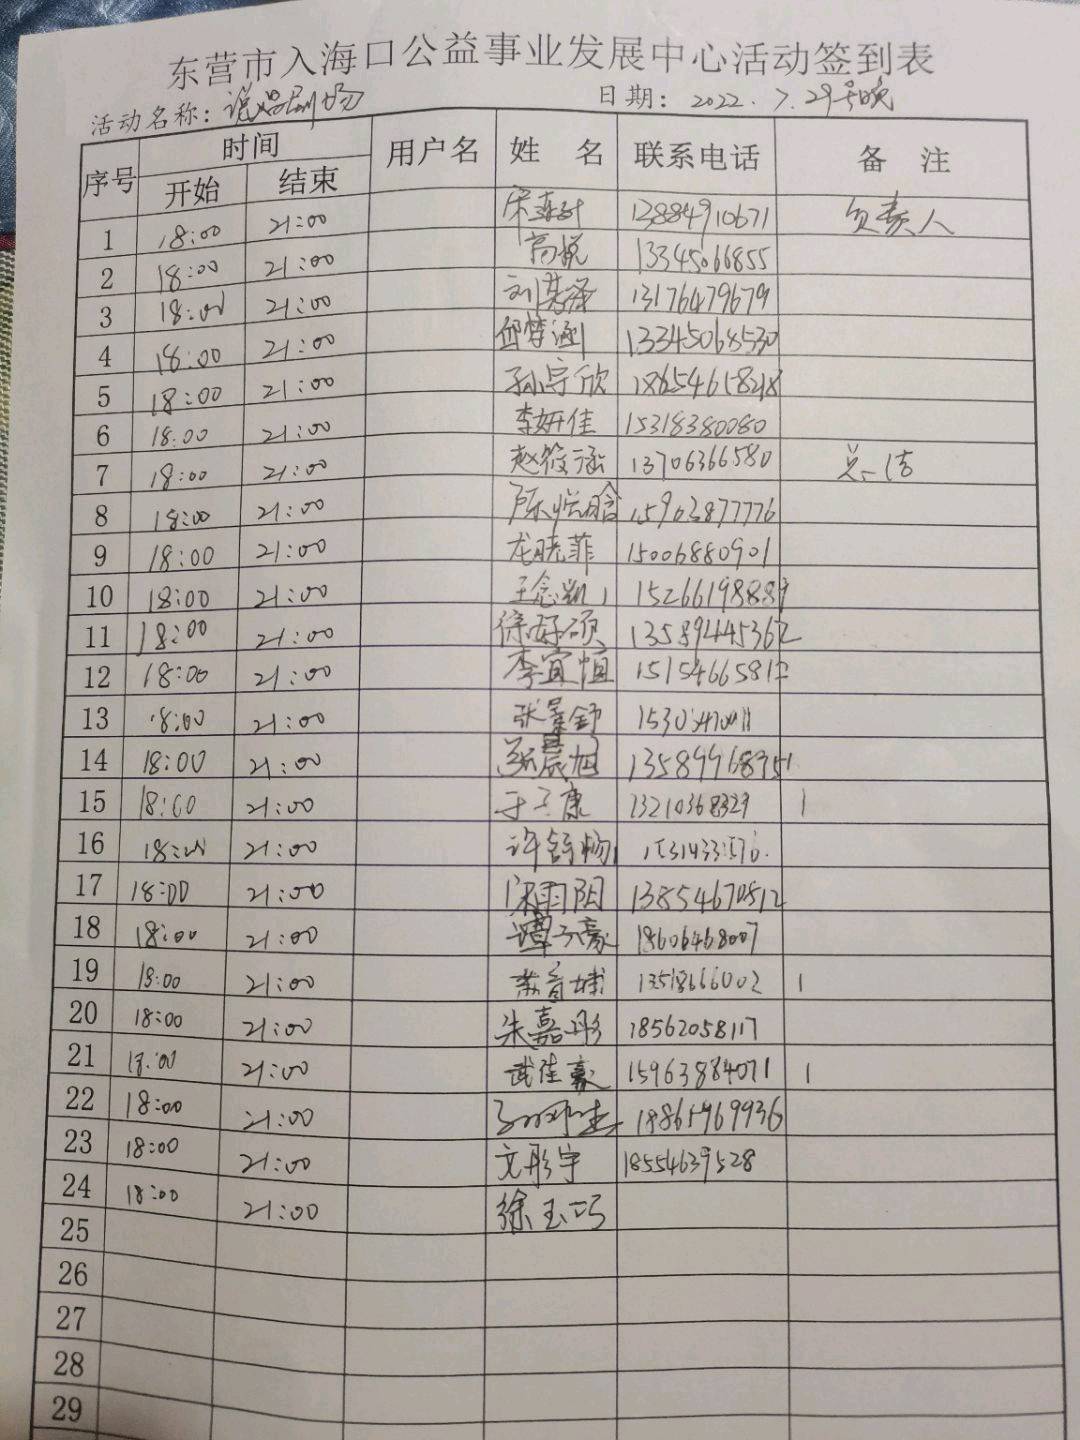 东营市入海口公益事业发展中心活动签到表
活动名称: 说唱剧场 日期: 2022.7.29号晚
序号 时间 用户名 姓 名 联系电话 备 注
开始 结束
1 18:00 21:00 13884910671 负责人
2 18:00 21:00 高悦 13345066855
3 18:00 21:00 刘慧泽 13176479679
4 18:00 21:00 邱梦涵 13345068530
5 18:00 21:00 孙宇欣 18654658218
6 18:00 21:00 李妍佳 15318380080
7 18:00 21:00 赵筱涵 13706366580 总结
8 18:00 21:00 陈悦晗 15963877776
9 18:00 21:00 龙晓菲 15006880901
10 18:00 21:00 王念凯 15266198889
11 18:00 21:00 徐好硕 13589445362
12 18:00 21:00 李宜恒
13 18:00 21:00 张景舒
14 18:00 21:00 张晨旭 13589968951
15 18:00 21:00 于子康 13210368329
16 18:00 21:00 许舒畅
17 18:00 21:00 宋雨阳 13854670512
18 18:00 21:00 谭子豪 18606468007
19 18:00 21:00 13518666002
20 18:00 21:00 朱嘉彤 18562058117
21 18:00 21:00 武佳豪 15963884071
22 18:00 21:00
23 18:00 21:00 文彤宇 18554639528
24 18:00 21:00 徐玉巧
25
26
27
28
29